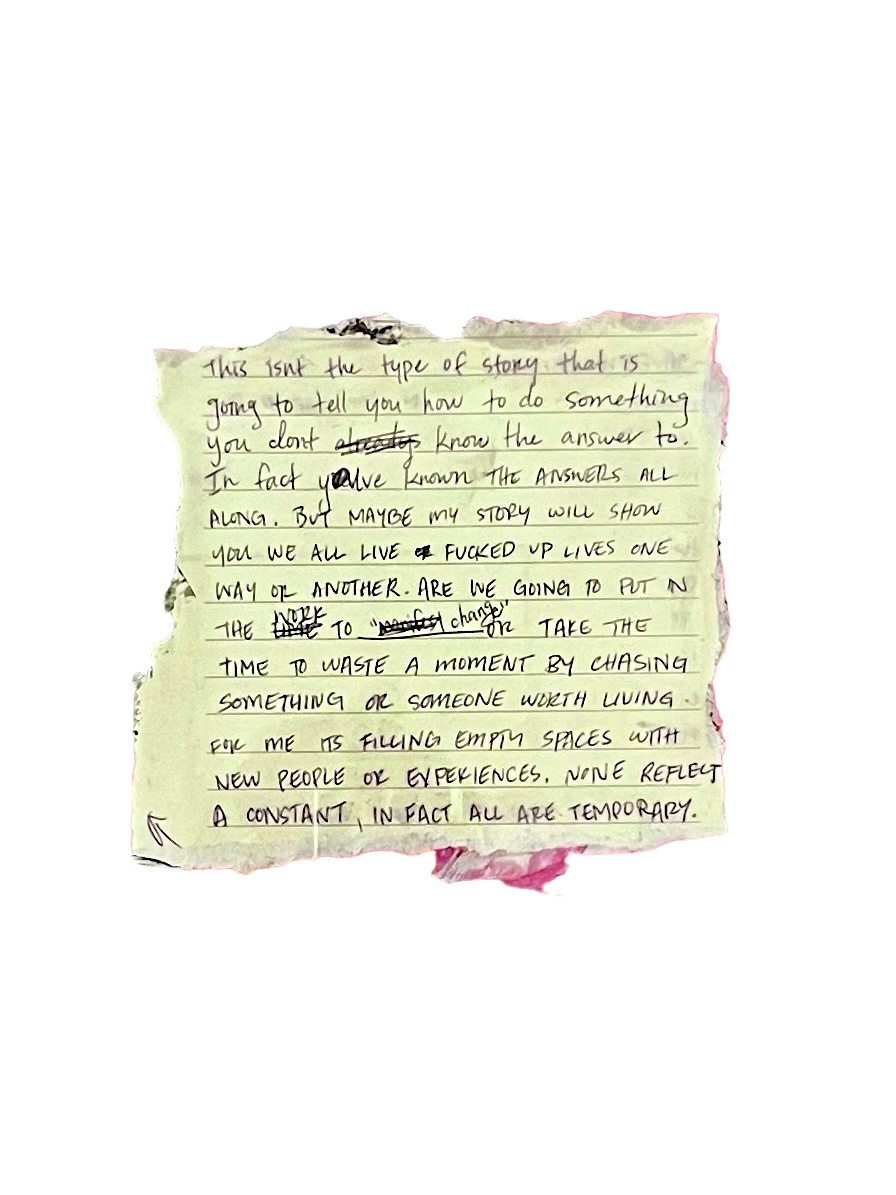 This isnt the type of story that is
going to tell you how to do something
you dont already know the answer to.
In fact you've known THE ANSWERS ALL
ALONG. BUT MAYBE MY STORY WILL SHOW
YOU WE ALL LIVE FUCKED UP LIVES ONE
WAY OR ANOTHER. ARE WE GOING TO PUT IN
WORK
THE TIME TO "manifest change" OR TAKE THE
TIME TO WASTE A MOMENT BY CHASING
SOMETHING OR SOMEONE WORTH LIVING.
FOR ME ITS FILLING EMPTY SPACES WITH
NEW PEOPLE OR EXPERIENCES. NONE REFLECT
A CONSTANT, IN FACT ALL ARE TEMPORARY.